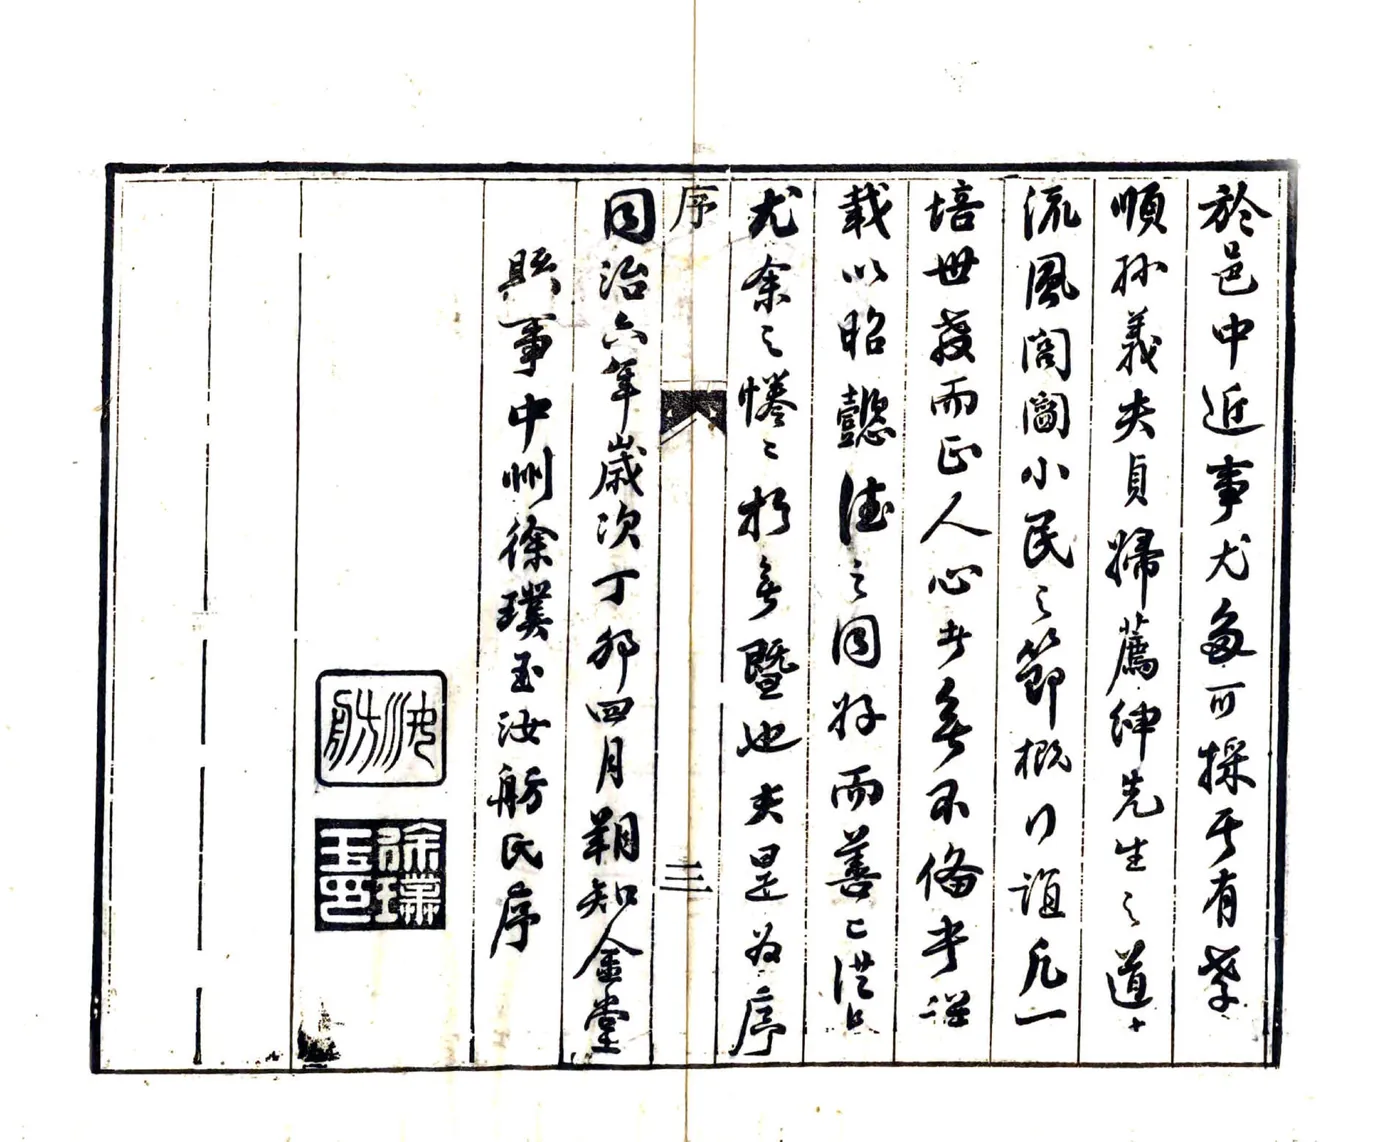 於邑中近事尤多可採其有孝
順孫義夫貞婦薦紳先生之道
流風閭閻小民之節概行誼凡一
培世教而正人心者無不備書謹
載以昭懿德之同好而善善從長
尤余之惓惓於無暨也夫是為序
序
三
同治六年歲次丁卯四月朔知金堂
縣事中州徐璞玉汝舫氏序
汝舫
徐璞玉印